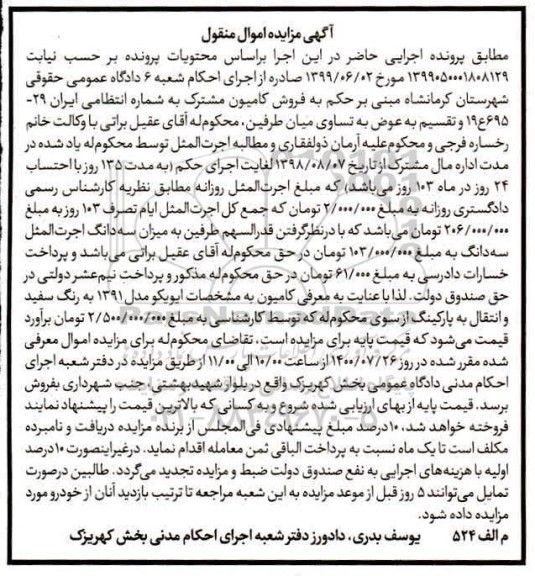 آگهی مزایده اموال منقول
مطابق پرونده اجرایی حاضر در این اجرا براساس محتویات پرونده بر حسب نیابت
۱۳۹۹۰۵۰۰۰۱۸۰۸۱۲۹ مورخ ۱۳۹۹/۰۶/۰۲ صادره از اجرای احکام شعبه ۶ دادگاه عمومی حقوقی
شهرستان کرمانشاه مبنی بر حکم به فروش کامیون مشترک به شماره انتظامی ایران ۲۹-
۶۹۵ع۱۹ و تقسیم به عوض به تساوی میان طرفین، محکوم‌له آقای عقیل براتی با وکالت خانم
رخساره فرجی و محکوم‌علیه آرمان ذولفقاری و مطالبه اجرت‌المثل توسط محکوم‌له یاد شده در
مدت اداره مال مشترک از تاریخ ۱۳۹۸/۰۸/۰۷ لغایت اجرای حکم (به مدت ۱۳۵ روز با احتساب
۲۴ روز در ماه ۱۰۳ روز می‌باشد) که مبلغ اجرت‌المثل روزانه مطابق نظریه کارشناس رسمی
دادگستری روزانه به مبلغ ۲/۰۰۰/۰۰۰ تومان که جمع کل اجرت‌المثل ایام تصرف ۱۰۳ روز به مبلغ
۲۰۶/۰۰۰/۰۰۰ تومان می‌باشد که با درنظرگرفتن قدرالسهم طرفین به میزان سه‌دانگ اجرت‌المثل
سه‌دانگ به مبلغ ۱۰۳/۰۰۰/۰۰۰ تومان در حق محکوم‌له آقای عقیل براتی می‌باشد و پرداخت
خسارات دادرسی به مبلغ ۶۱/۰۰۰ تومان در حق محکوم‌له مذکور و پرداخت نیم‌عشر دولتی در
حق صندوق دولت. لذا با عنایت به معرفی کامیون به مشخصات ایویکو مدل ۱۳۹۱ به رنگ سفید
و انتقال به پارکینگ از سوی محکوم‌له که توسط کارشناسی به مبلغ ۲/۵۰۰/۰۰۰/۰۰۰ تومان برآورد
قیمت می‌شود که قیمت پایه برای مزایده است. تقاضای محکوم‌له برای مزایده اموال معرفی
شده مقرر شده در روز ۱۴۰۰/۰۷/۲۶ از ساعت ۱۰/۰۰ الی ۱۱/۰۰ از طریق مزایده در دفتر شعبه اجرای
احکام مدنی دادگاه عمومی بخش کهریزک واقع در بلوار شهید بهشتی جنب شهرداری بفروش
برسد. قیمت پایه از بهای ارزیابی شده شروع و به کسانی که بالاترین قیمت را پیشنهاد نمایند
فروخته خواهد شد، ۱۰درصد مبلغ پیشنهادی فی‌المجلس از برنده مزایده دریافت و نامبرده
مکلف است تا یک ماه نسبت به پرداخت الباقی ثمن معامله اقدام نماید. درغیراینصورت ۱۰درصد
اولیه با هزینه‌های اجرایی به نفع صندوق دولت ضبط و مزایده تجدید می‌گردد. طالبین درصورت
تمایل می‌توانند ۵ روز قبل از موعد مزایده به این شعبه مراجعه تا ترتیب بازدید آنان از خودرو مورد
مزایده داده شود.
م الف ۵۲۴ یوسف بدری، دادورز دفتر شعبه اجرای احکام مدنی بخش کهریزک